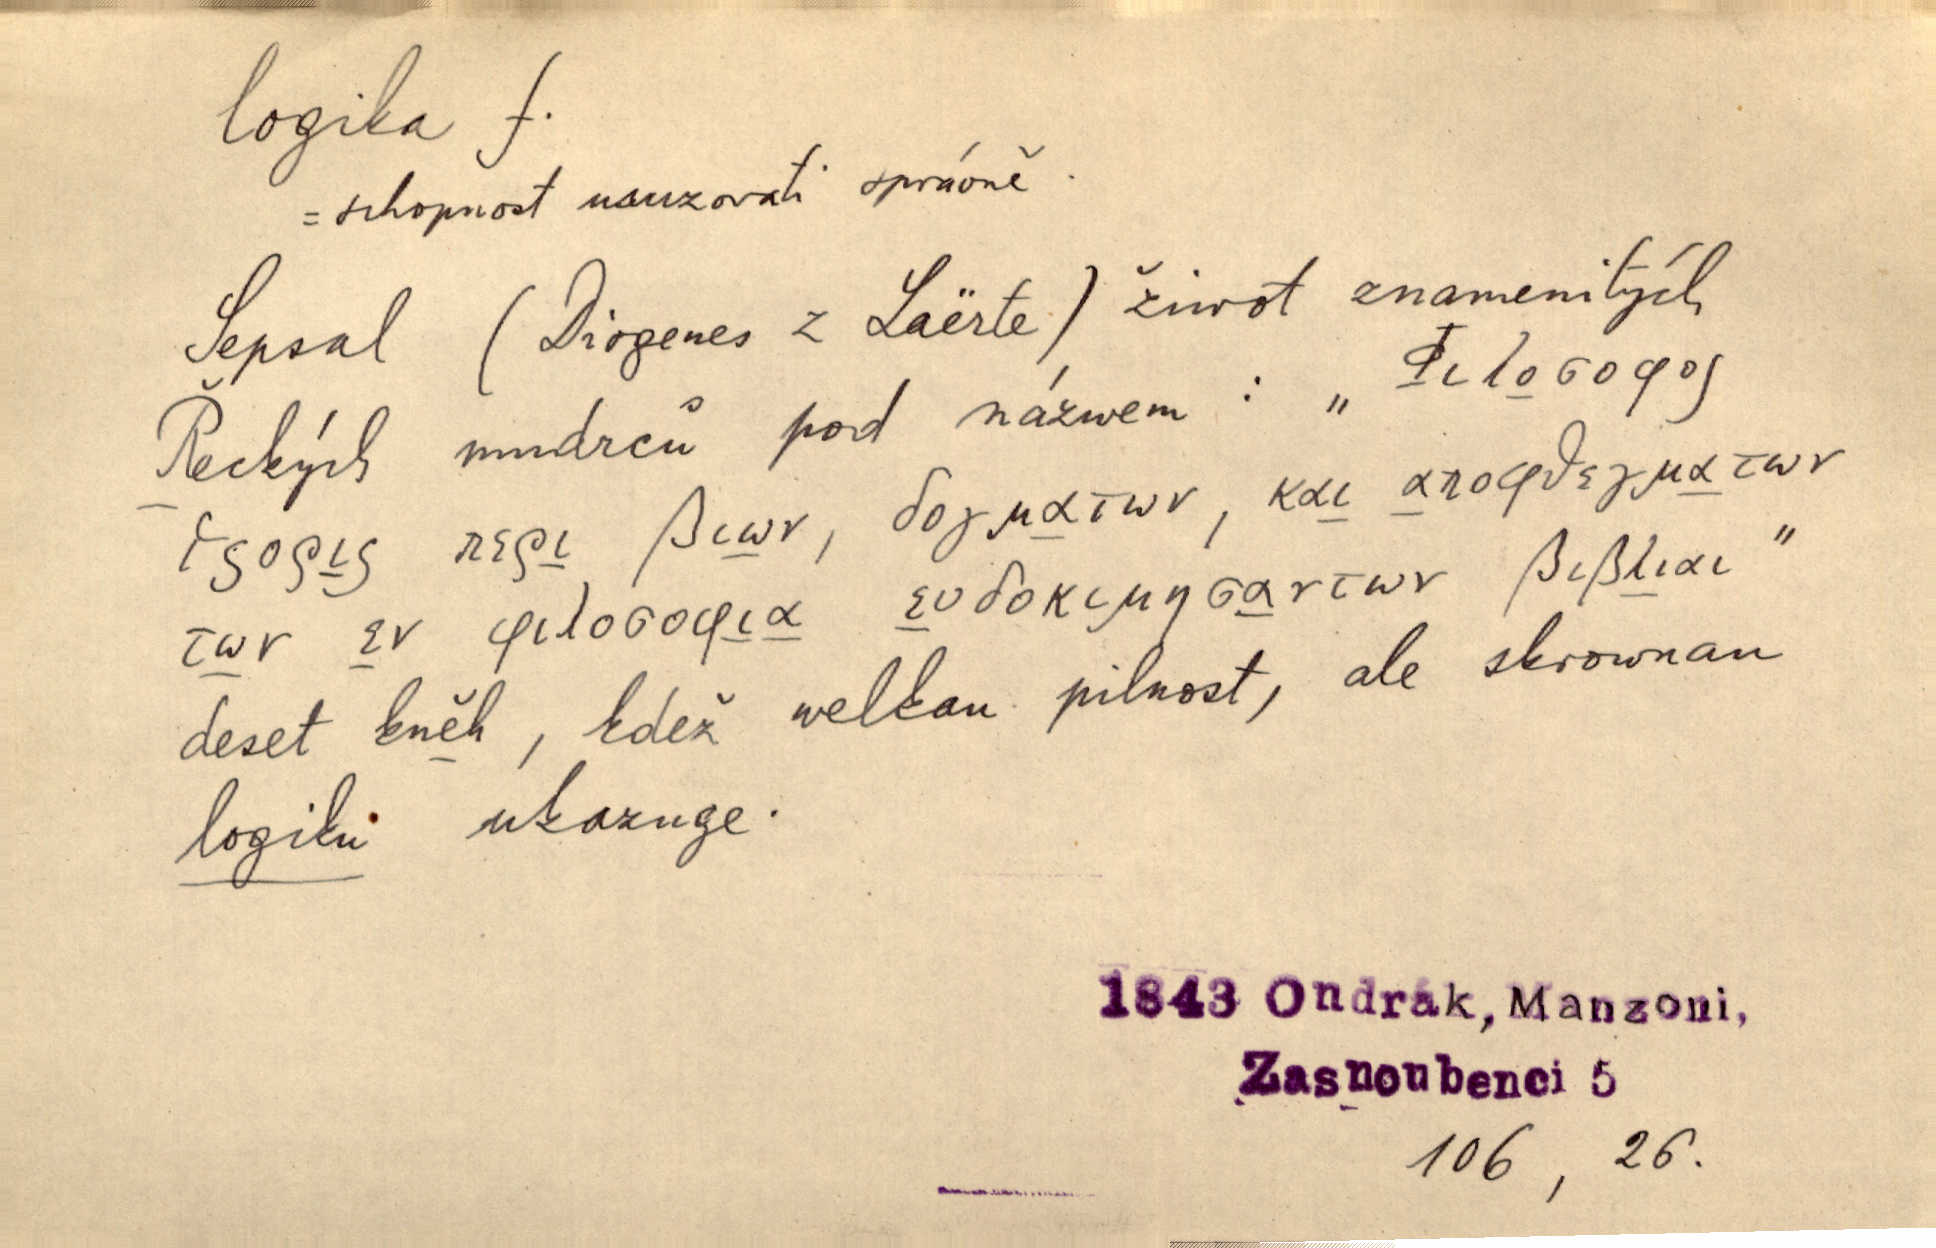 logika f.
= schopnost usuzovati správně.
Sepsal (Diogenes z Laërte) žiwot znamenitých
Řeckých mudrců pod názwem : „Φιλοσοφος
ἱςορις περι βιων, δογματων, και αποφθεγματων
των εν φιλοσοφια ευδοκιμησαντων βιβλιαι"
deset kněh, kdež welkau pilnost, ale skrownau
logiku ukazuge.
1843 Ondrák, Manzoni,
Zasnoubenci 5
106, 26.